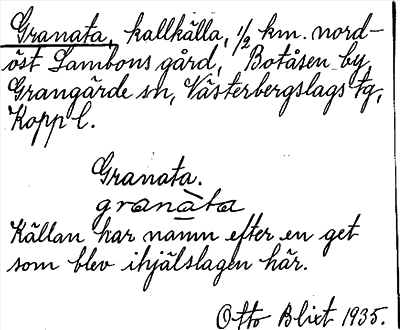 Granata, kallkälla, 1/2 km. nord-
öst Lambons gård, Botåsen by,
Grangärde sn, Västerbergslags tg,
Kopp l.
Granata.
granàta
Källan har namn efter en get
som blev ihjälslagen här.
Otto Blixt 1935.